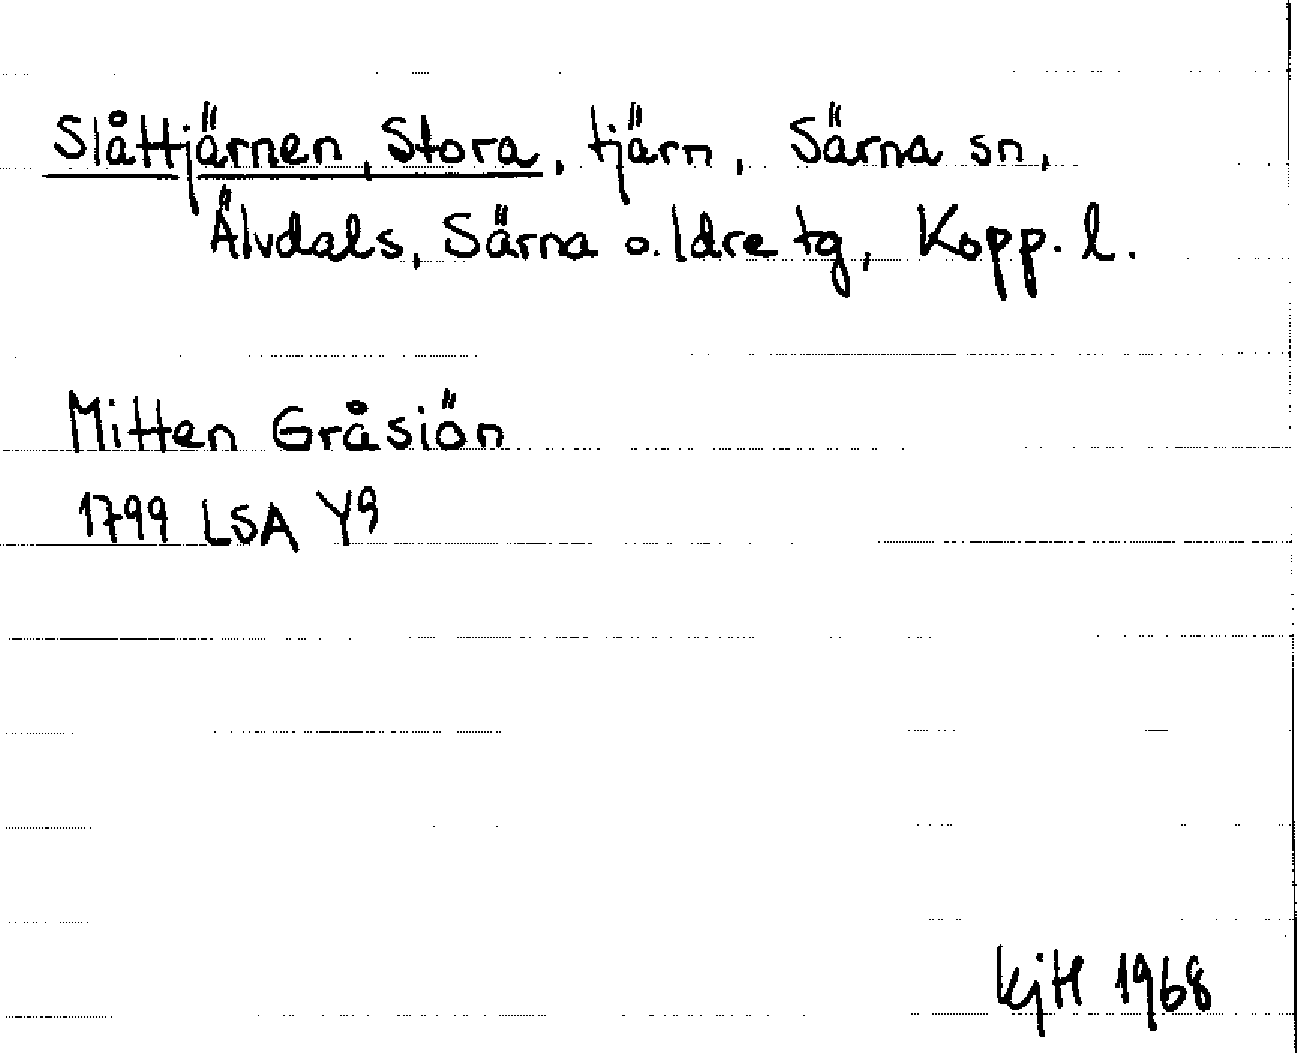 Slåttjärnen, Stora, tjärn, Särna sn,
Älvdals, Särna o. Idre tg, Kopp. l.
Mitten Gråsiön
1799 LSA Y9
KjH 1968